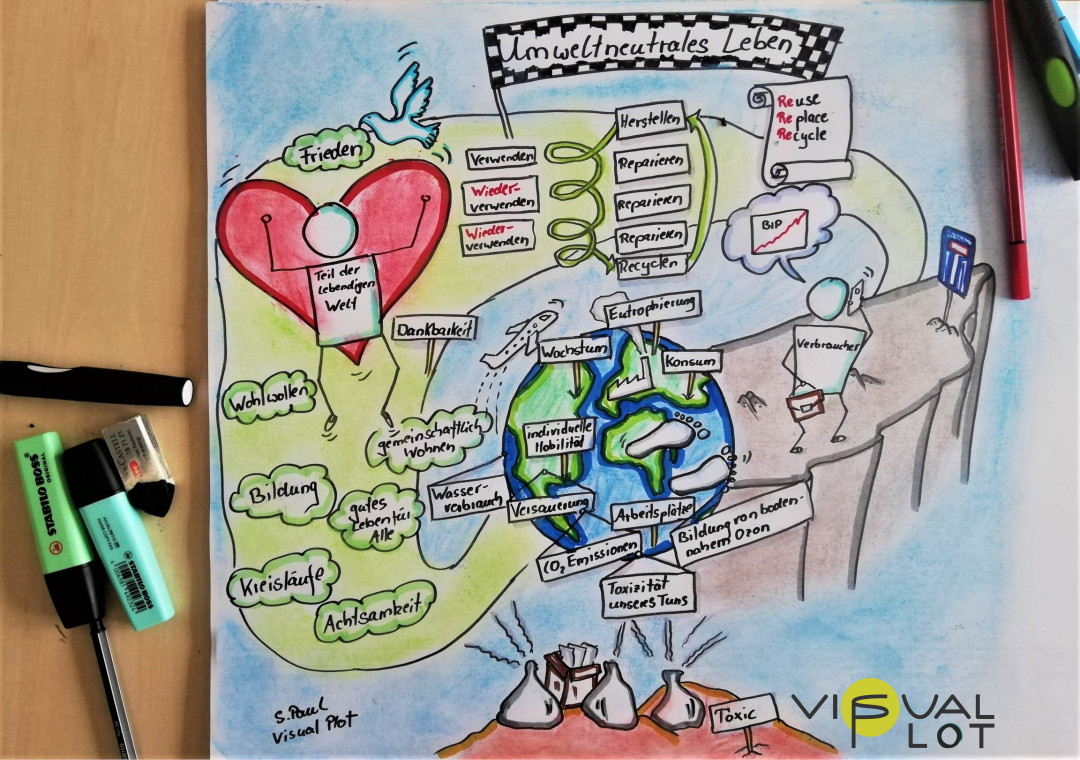 Umweltneutrales Leben
Frieden
Teil der
lebendigen
Welt
Verwenden
Wieder-
verwenden
Wieder-
verwenden
Herstellen
Reparieren
Reparieren
Reparieren
Recyclen
Reuse
Replace
Recycle
BIP
Verbraucher
Dankbarkeit
Wohlwollen
gemeinschaftlich
Wohnen
Bildung
gutes
Leben für
Alle
Kreisläufe
Achtsamkeit
Eutrophierung
Wachstum
Konsum
individuelle
Mobilität
Wasser-
verbrauch
Versauerung
Arbeitsplätze
CO2 Emissionen
Bildung von boden-
nahem Ozon
Toxizität
unseres Tuns
Toxic
S. Paul
Visual Plot
VISUAL
PLOT
STABILO BOSS
ORIGINAL
STABILO BOSS